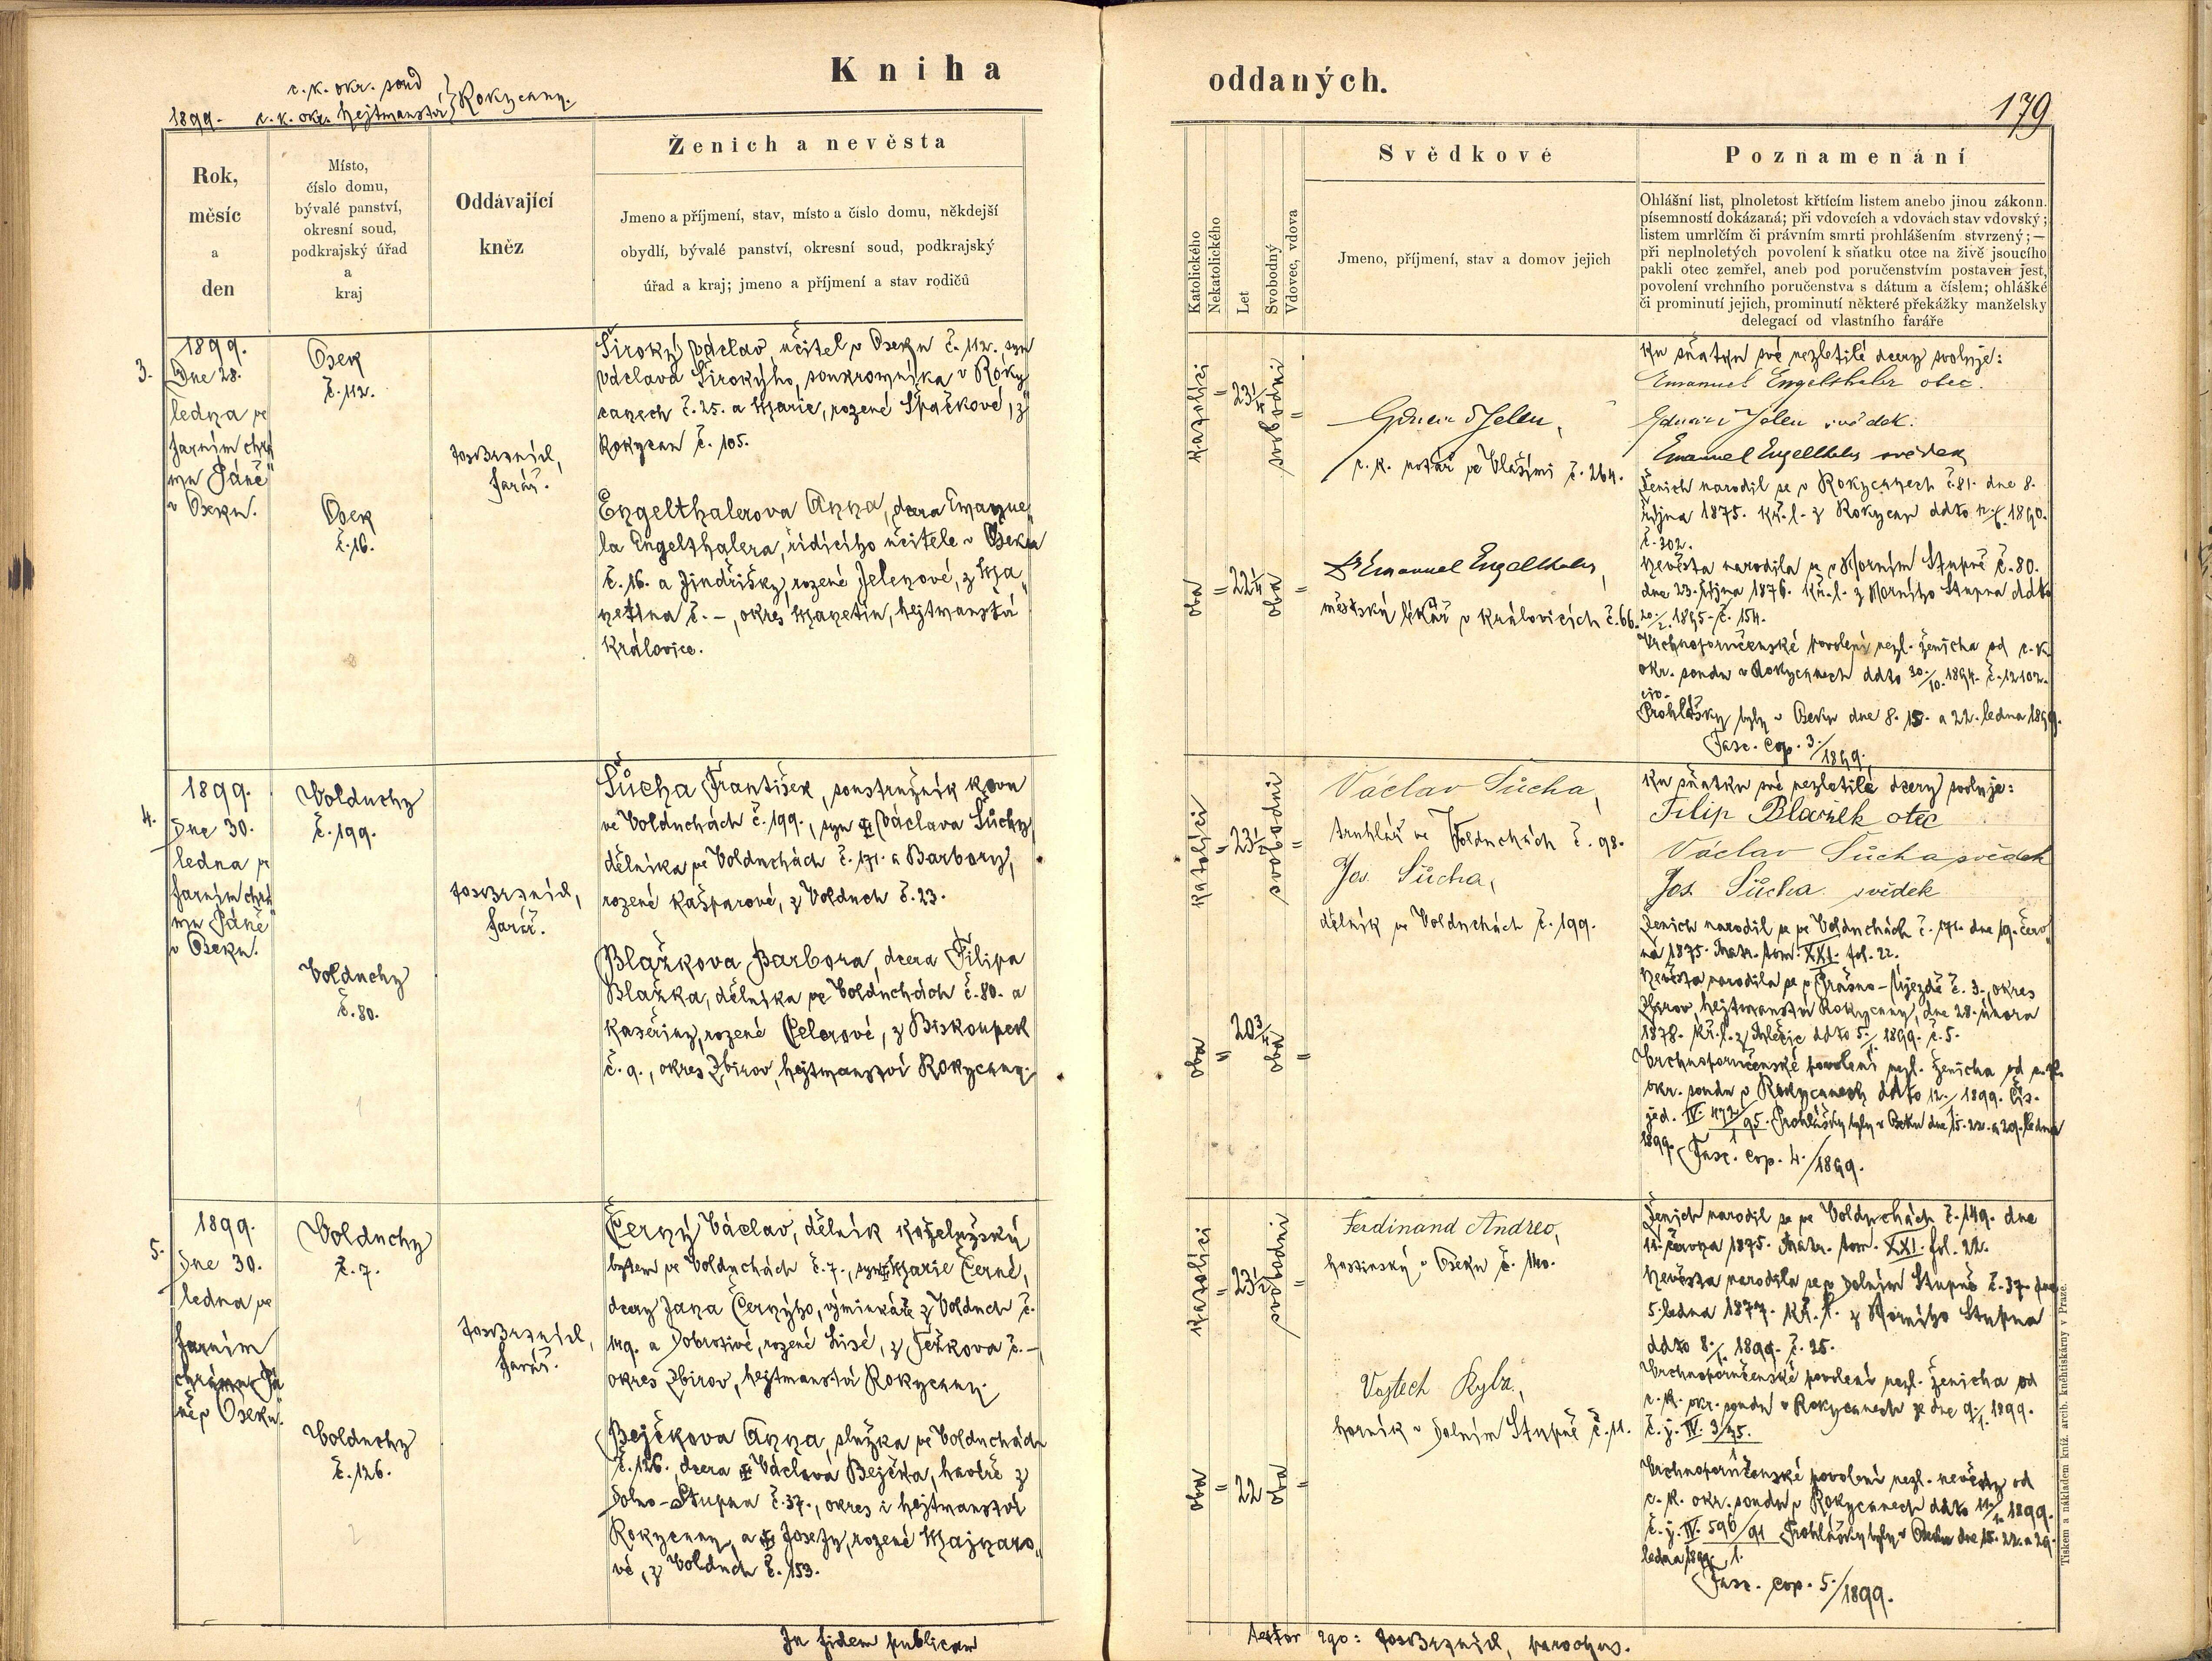 Kniha
oddaných.
179
c. k. okr. soud
1899. c. k. okr. hejtmanství } Rokycany.
Rok,
měsíc
a
den
Místo,
číslo domu,
bývalé panství,
okresní soud,
podkrajský úřad
a
kraj
Oddávající
kněz
Ženich a nevěsta
Jmeno a příjmení, stav, místo a číslo domu, někdejší
obydlí, bývalé panství, okresní soud, podkrajský
úřad a kraj; jmeno a příjmení a stav rodičů
Katolického
Nekatolického
Let
Svobodný
Vdovec, vdova
Svědkové
Jmeno, příjmení, stav a domov jejich
Poznamenání
Ohlášní list, plnoletost křtícím listem anebo jinou zákonn.
písemností dokázaná; při vdovcích a vdovách stav vdovský;
listem umrlčím či právním smrti prohlášením stvrzený;—
při neplnoletých povolení k sňatku otce na živě jsoucího
pakli otec zemřel, aneb pod poručenstvím postaven jest,
povolení vrchního poručenstva s dátum a číslem; ohlášké
či prominutí jejich, prominutí některé překážky manželsky
delegací od vlastního faráře
3.
1899.
Dne 28.
ledna ve
farním chrá
mu Páně
v Oseku.
Osek
č. 112.
Osek
č. 16.
farář.
Široký Václav, učitel v Oseku č. 112. syn
Václava Širokýho, soukromníka v Roky
canech č. 25. a Marie, rozené Špačkové, z
Rokycan č. 105.
Engelthalerova Anna, dcera Emanue
la Engelthalera, řídícího učitele v Oseku
č. 16. a Jindřišky, rozené Jelenové, z Ma
netína č. –, okres Manetín, hejtmanství
Královice.
katolíci
oba
23 1/4
22 1/4
svobodni
oba
Eduard Jelen,
c. k. notář ve Vlašimi č. 264.
Dr Emanuel Engelthaler,
městský lékař v Královicích č. 66.
Ku sňatku své nezletilé dcery svoluje:
Emanuel Engelthaler otec.
Eduard Jelen svědek.
Emanuel Engelthaler svědek
Ženich narodil se v Rokycanech č. 81. dne 8.
října 1875. kř. l. z Rokycan ddto 1890.
č. 302.
Nevěsta narodila se v Horním Stupně č. 80.
dne 23. října 1876. kř. l. z Horního Stupna ddto
20/2. 1895. č. 154.
Vrchnoporučenské povolení nezl. ženicha od c. k.
okr. soudu v Rokycanech ddto 30./10. 1894. č. 12102.
civ.
Prohlášky byly v Oseku dne 8. 15. a 22. ledna 1899.
Fasc. cop. 3./1899.
4.
1899.
Dne 30.
ledna ve
farním chrá
mu Páně
v Oseku.
Volduchy
č. 199.
Volduchy
č. 80.
farář.
Šůcha František, soustružník kovu
ve Volduchách č. 199., syn ‡ Václava Šůchy,
dělníka ve Volduchách č. 171. a Barbory,
rozené Kašparové, z Volduch č. 23.
Blažkova Barbora, dcera Filipa
Blažka, dělníka ve Volduchách č. 80. a
Kateřiny, rozené Celerové, z Biskoupek
č. 9., okres Zbirov, hejtmanství Rokycany.
1
katolíci
oba
23 1/2
20 3/4
svobodni
oba
Václav Šůcha,
truhlář ve Volduchách č. 98.
Jos. Šůcha,
dělník ve Volduchách č. 199.
Ku sňatku své nezletilé dcery svoluje:
Filip Blažek otec
Václav Šůcha svědek
Jos. Šůcha svědek
Ženich narodil se ve Volduchách č. 171. dne 19. červ
na 1875. Matr. tom. XXI. fol. 22.
Nevěsta narodila se v Prášno-Újezdě č. 3., okres
Zbirov, hejtmanství Rokycany, dne 28. února
1878. kř. l. z Mlečic ddto 5./1. 1899. č. 5.
Vrchnoporučenské povolení nezl. ženicha od c. k.
okr. soudu v Rokycanech ddto 12./1. 1899. čís.
jed. IV. 472/95. Prohlášky byly v Oseku dne 15. 22. a 29. ledna
1
1899. Fasc. cop. 4./1899.
5.
1899.
Dne 30.
ledna ve
farním
chrámu Pá
ně v Oseku.
Volduchy
č. 7.
Volduchy
č. 126.
farář.
Černý Václav, dělník koželužský
bytem ve Volduchách č. 7., syn ‡ Marie Černé,
dcery Jana Černýho, výminkáře z Volduch č.
149. a Dobrotivé, rozené Lisé, z Těžkova č. –,
okres Zbirov, hejtmanství Rokycany.
Bejčkova Anna, služka ve Volduchách
č. 126., dcera ‡ Václava Bejčka, havíře z
Dolno-Stupna č. 37., okres i hejtmanství
Rokycany, a ‡ Josefy, rozené Majnaro
vé, z Volduch č. 153.
2
katolíci
oba
23 1/2
22
svobodni
oba
Ferdinand Andrlo,
hostinský v Oseku č. 140.
Vojtech Rylz.,
horník v Dolním Stupně č. 11.
Ženich narodil se ve Volduchách č. 149. dne
11. června 1875. Matr. tom. XXI. fol. 22.
Nevěsta narodila se v Dolním Stupně č. 37. dne
5. ledna 1877. kř. l. z Horního Stupna
ddto 8./1. 1899. č. 25.
Vrchnoporučenské povolení nezl. ženicha od
c. k. okr. soudu v Rokycanech ze dne 9./1. 1899.
č. j. IV. 3/95.
1
Vrchnoporučenské povolení nezl. nevěsty od
c. k. okr. soudu v Rokycanech ddto 14./1. 1899.
č. j. IV. 596/91 Prohlášky byly v Oseku dne 15. 22. a 29.
ledna 1899. 1.
Fasc. cop. 5./1899.
In fidem publicam
testor ego: parochus.
Tiskem a nákladem kníž. arcib. kněhtiskárny v Praze.